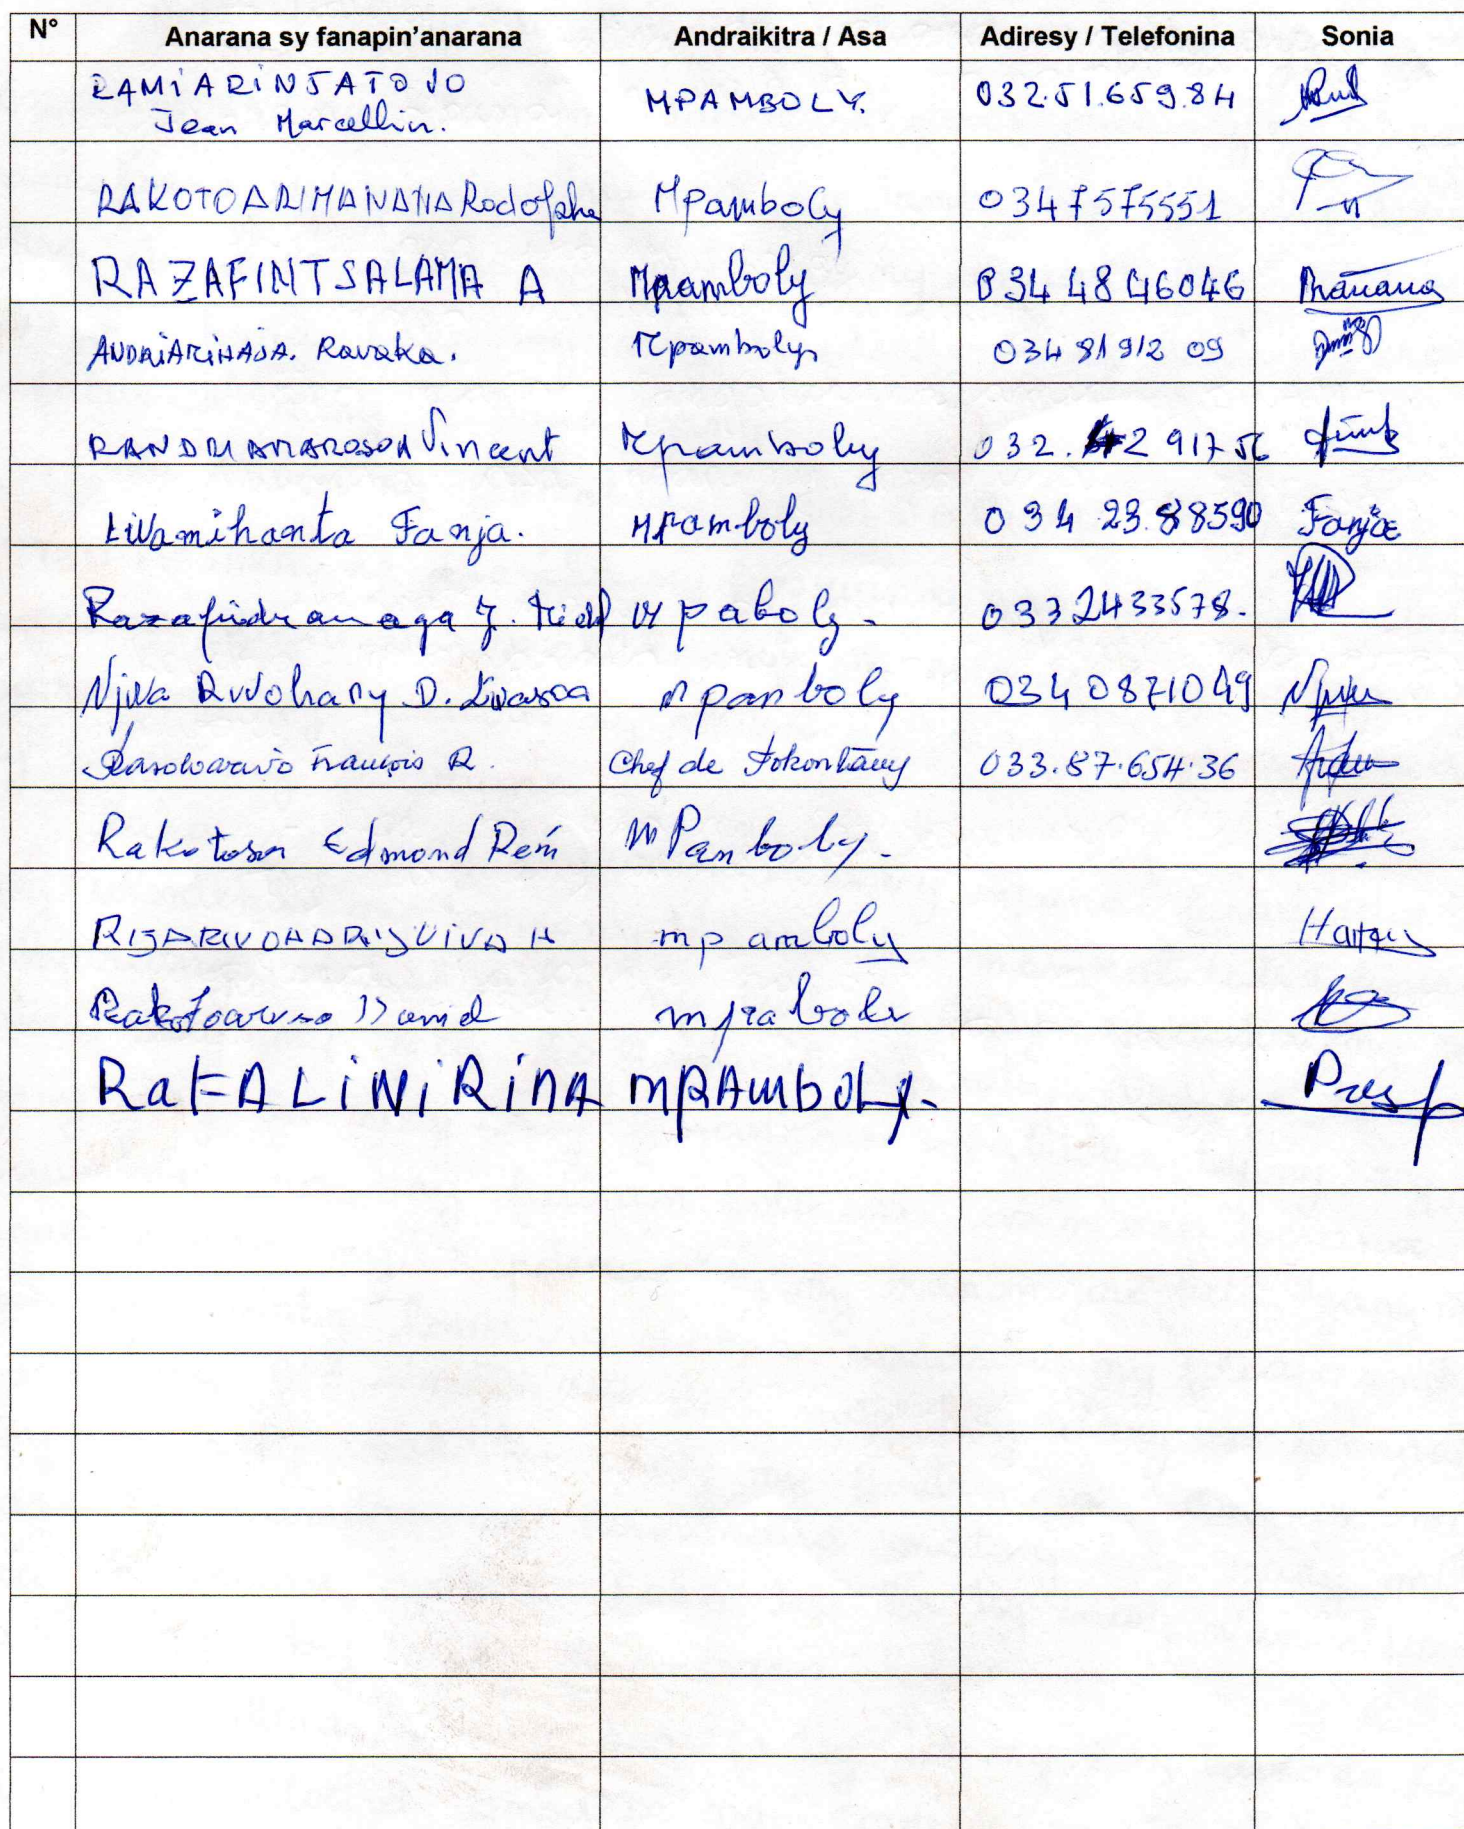 N° Anarana sy fanapin'anarana Andraikitra / Asa Adiresy / Telefonina Sonia
RAMIARINJATOVO
Jean Marcellin. MPAMBOLY. 032.51.659.84
RAKOTOARIMANANA Rodolphe Mpamboly 0347575551
RAZAFINTSALAMA A Mpamboly 034 48 46046
ANDRIARIHAJA. Ravaka. Mpamboly 034 81 912 09
RANDRIAMAROSOA Vincent Mpamboly 032. 42 917 56
Livamihanta Fanja. Mpamboly 034 23.88590 Fanja
Mpaboly. 0332433578.
Njiva Rivohany D. Mpamboly 0340871049
François R. Chef de Fokontany 033.87.654.36
Rakotoson Edmond Mpamboly.
mpamboly
David mpaboly
RaFALiNiRiNA mPAmbOLy.